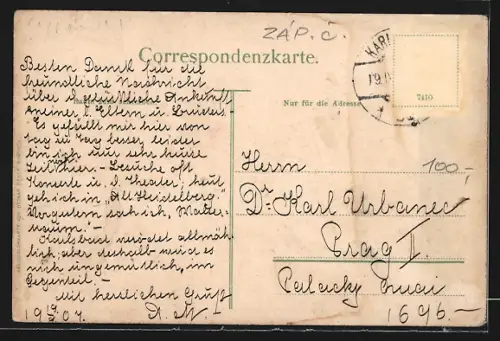 ZÁP. Č.
Correspondenzkarte.
KARL
19.
7410
Nur für die Adresse
Besten Dank für die
freundliche Nachricht
über glückliche Ankunft
meiner l. Eltern u. Louises.
Es gefällt mir hier von
Tag zu Tag besser leider
bin ich nur sehr heuse
Besuche oft
Konzerte u. d. Theater; heut
geh ich in "Alt Heidelberg"
sah ich,
Karlsbad verödet allmäh-
lich, aber deshalb wird es
nicht ungemütlich, im
Gegenteil.-
Mit herzlichen Gruß
19 9/9 07.
Herrn
Dr. Karl Urbanec
Prag II.
Palacky quai
1696.-
100,-